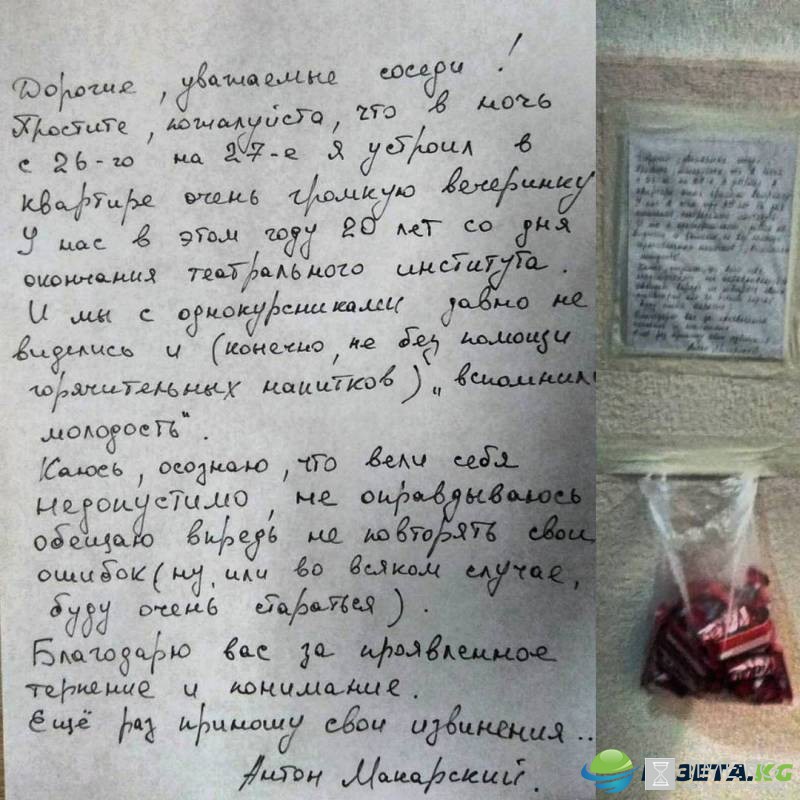 Дорогие, уважаемые соседи!
Простите, пожалуйста, что в ночь
с 26-го на 27-е я устроил в
квартире очень громкую вечеринку
У нас в этом году 20 лет со дня
окончания театрального института.
И мы с однокурсниками давно не
виделись и (конечно, не без помощи
горячительных напитков) „вспомнили
молодость".
Каюсь, осознаю, что вели себя
недопустимо, не оправдываюсь
обещаю впредь не повторять свои
ошибок (ну, или во всяком случае,
буду очень стараться).
Благодарю вас за проявленное
терпение и понимание.
Ещё раз приношу свои извинения..
Антон Макарский.
ЗЕТА.KG